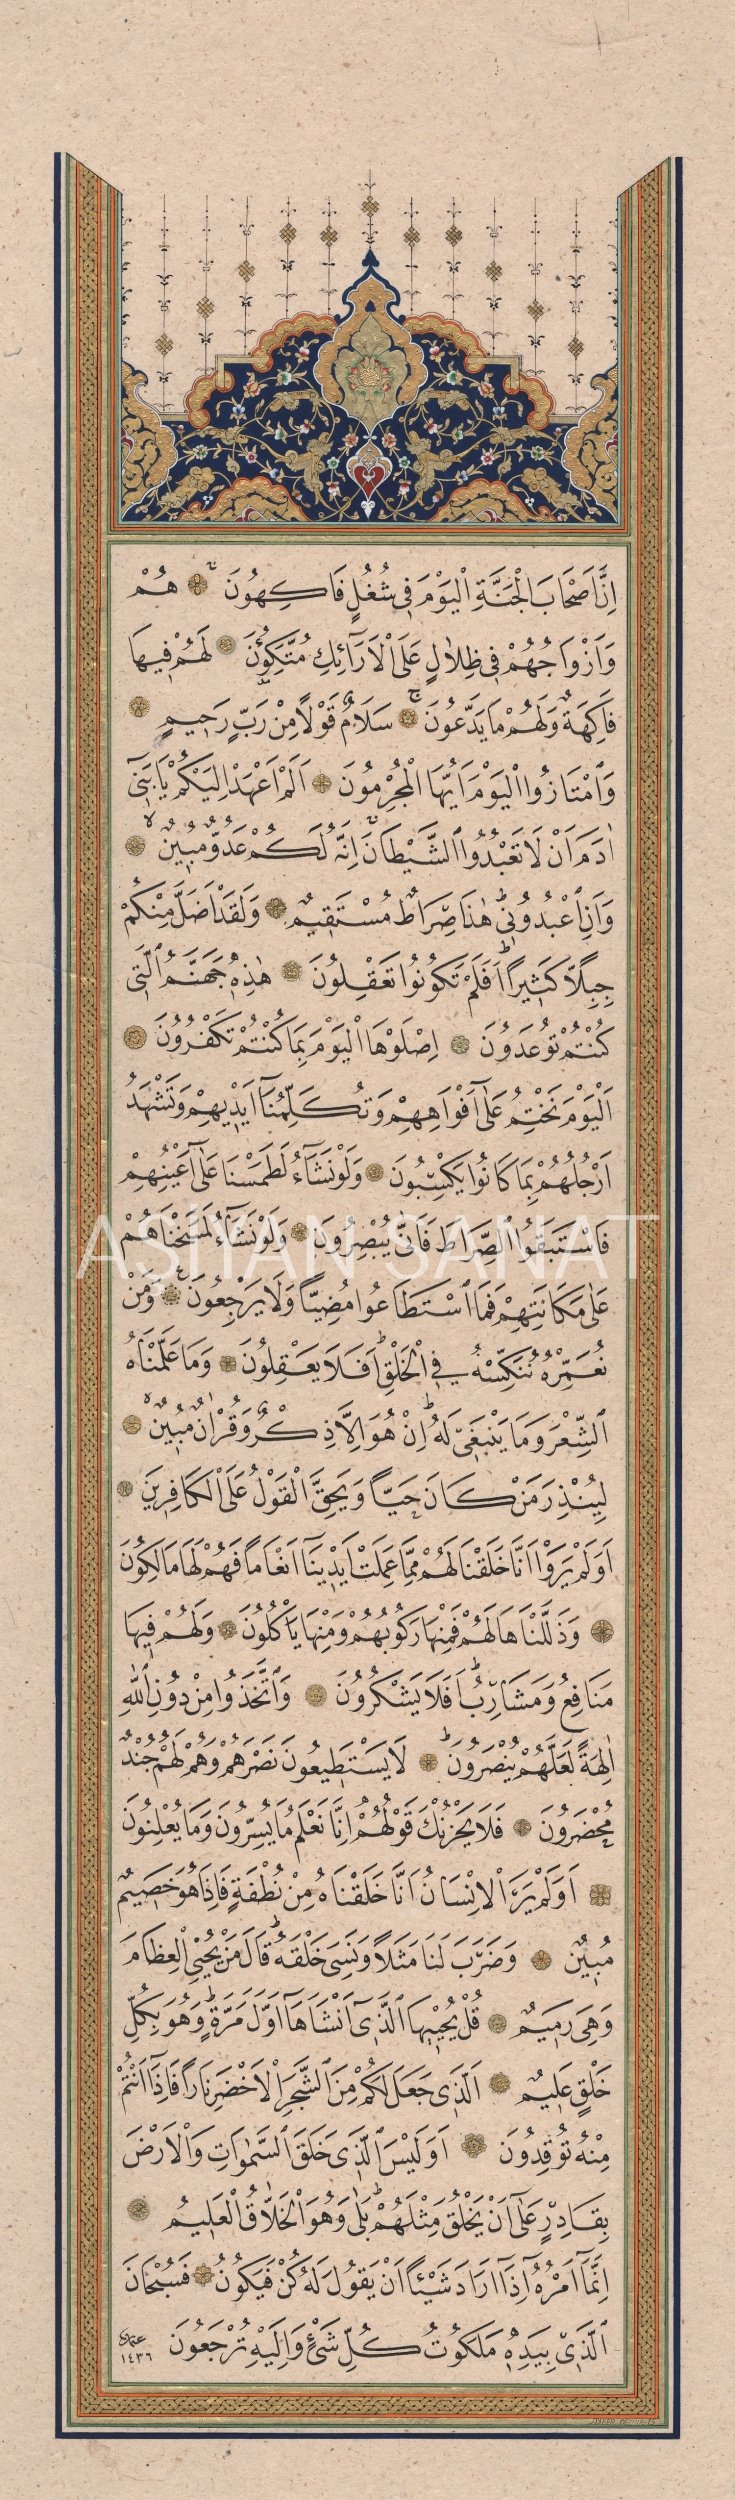 اِنَّ اَصْحَابَ الْجَنَّةِ الْيَوْمَ فٖى شُغُلٍ فَاكِهُونَ هُمْ
وَاَزْوَاجُهُمْ فٖى ظِلَالٍ عَلَى الْاَرَٓائِكِ مُتَّكِؤُنَ لَهُمْ فٖيهَا
فَاكِهَةٌ وَلَهُمْ مَا يَدَّعُونَ سَلَامٌ قَوْلًا مِنْ رَبٍّ رَحٖيمٍ
وَامْتَازُوا الْيَوْمَ اَيُّهَا الْمُجْرِمُونَ اَلَمْ اَعْهَدْ اِلَيْكُمْ يَا بَنٖٓى
اٰدَمَ اَنْ لَا تَعْبُدُوا الشَّيْطَانَ اِنَّهُ لَكُمْ عَدُوٌّ مُبٖينٌ
وَاَنِ اعْبُدُونٖى هٰذَا صِرَاطٌ مُسْتَقٖيمٌ وَلَقَدْ اَضَلَّ مِنْكُمْ
جِبِلًّا كَثٖيرًا اَفَلَمْ تَكُونُوا تَعْقِلُونَ هٰذِهٖ جَهَنَّمُ الَّتٖى
كُنْتُمْ تُوعَدُونَ اِصْلَوْهَا الْيَوْمَ بِمَا كُنْتُمْ تَكْفُرُونَ
اَلْيَوْمَ نَخْتِمُ عَلٰٓى اَفْوَاهِهِمْ وَتُكَلِّمُنَٓا اَيْدٖيهِمْ وَتَشْهَدُ
اَرْجُلُهُمْ بِمَا كَانُوا يَكْسِبُونَ وَلَوْ نَشَٓاءُ لَطَمَسْنَا عَلٰٓى اَعْيُنِهِمْ
فَاسْتَبَقُوا الصِّرَاطَ فَاَنّٰى يُبْصِرُونَ وَلَوْ نَشَٓاءُ لَمَسَخْنَاهُمْ
عَلٰى مَكَانَتِهِمْ فَمَا اسْتَطَاعُوا مُضِيًّا وَلَا يَرْجِعُونَ وَمَنْ
نُعَمِّرْهُ نُنَكِّسْهُ فِى الْخَلْقِ اَفَلَا يَعْقِلُونَ وَمَا عَلَّمْنَاهُ
الشِّعْرَ وَمَا يَنْبَغٖى لَهُ اِنْ هُوَ اِلَّا ذِكْرٌ وَقُرْاٰنٌ مُبٖينٌ
لِيُنْذِرَ مَنْ كَانَ حَيًّا وَيَحِقَّ الْقَوْلُ عَلَى الْكَافِرٖينَ
اَوَلَمْ يَرَوْا اَنَّا خَلَقْنَا لَهُمْ مِمَّا عَمِلَتْ اَيْدٖينَٓا اَنْعَامًا فَهُمْ لَهَا مَالِكُونَ
وَذَلَّلْنَاهَا لَهُمْ فَمِنْهَا رَكُوبُهُمْ وَمِنْهَا يَاْكُلُونَ وَلَهُمْ فٖيهَا
مَنَافِعُ وَمَشَارِبُ اَفَلَا يَشْكُرُونَ وَاتَّخَذُوا مِنْ دُونِ اللّٰهِ
اٰلِهَةً لَعَلَّهُمْ يُنْصَرُونَ لَا يَسْتَطٖيعُونَ نَصْرَهُمْ وَهُمْ لَهُمْ جُنْدٌ
مُحْضَرُونَ فَلَا يَحْزُنْكَ قَوْلُهُمْ اِنَّا نَعْلَمُ مَا يُسِرُّونَ وَمَا يُعْلِنُونَ
اَوَلَمْ يَرَ الْاِنْسَانُ اَنَّا خَلَقْنَاهُ مِنْ نُطْفَةٍ فَاِذَا هُوَ خَصٖيمٌ
مُبٖينٌ وَضَرَبَ لَنَا مَثَلًا وَنَسِىَ خَلْقَهُ قَالَ مَنْ يُحْيِى الْعِظَامَ
وَهِىَ رَمٖيمٌ قُلْ يُحْيٖيهَا الَّذٖٓى اَنْشَاَهَٓا اَوَّلَ مَرَّةٍ وَهُوَ بِكُلِّ
خَلْقٍ عَلٖيمٌ اَلَّذٖى جَعَلَ لَكُمْ مِنَ الشَّجَرِ الْاَخْضَرِ نَارًا فَاِذَٓا اَنْتُمْ
مِنْهُ تُوقِدُونَ اَوَلَيْسَ الَّذٖى خَلَقَ السَّمٰوَاتِ وَالْاَرْضَ
بِقَادِرٍ عَلٰٓى اَنْ يَخْلُقَ مِثْلَهُمْ بَلٰى وَهُوَ الْخَلَّاقُ الْعَلٖيمُ
اِنَّمَٓا اَمْرُهُٓ اِذَٓا اَرَادَ شَيْـًٔا اَنْ يَقُولَ لَهُ كُنْ فَيَكُونُ فَسُبْحَانَ
الَّذٖى بِيَدِهٖ مَلَكُوتُ كُلِّ شَىْءٍ وَاِلَيْهِ تُرْجَعُونَ
١٤٣٦
ASHAN SANAT